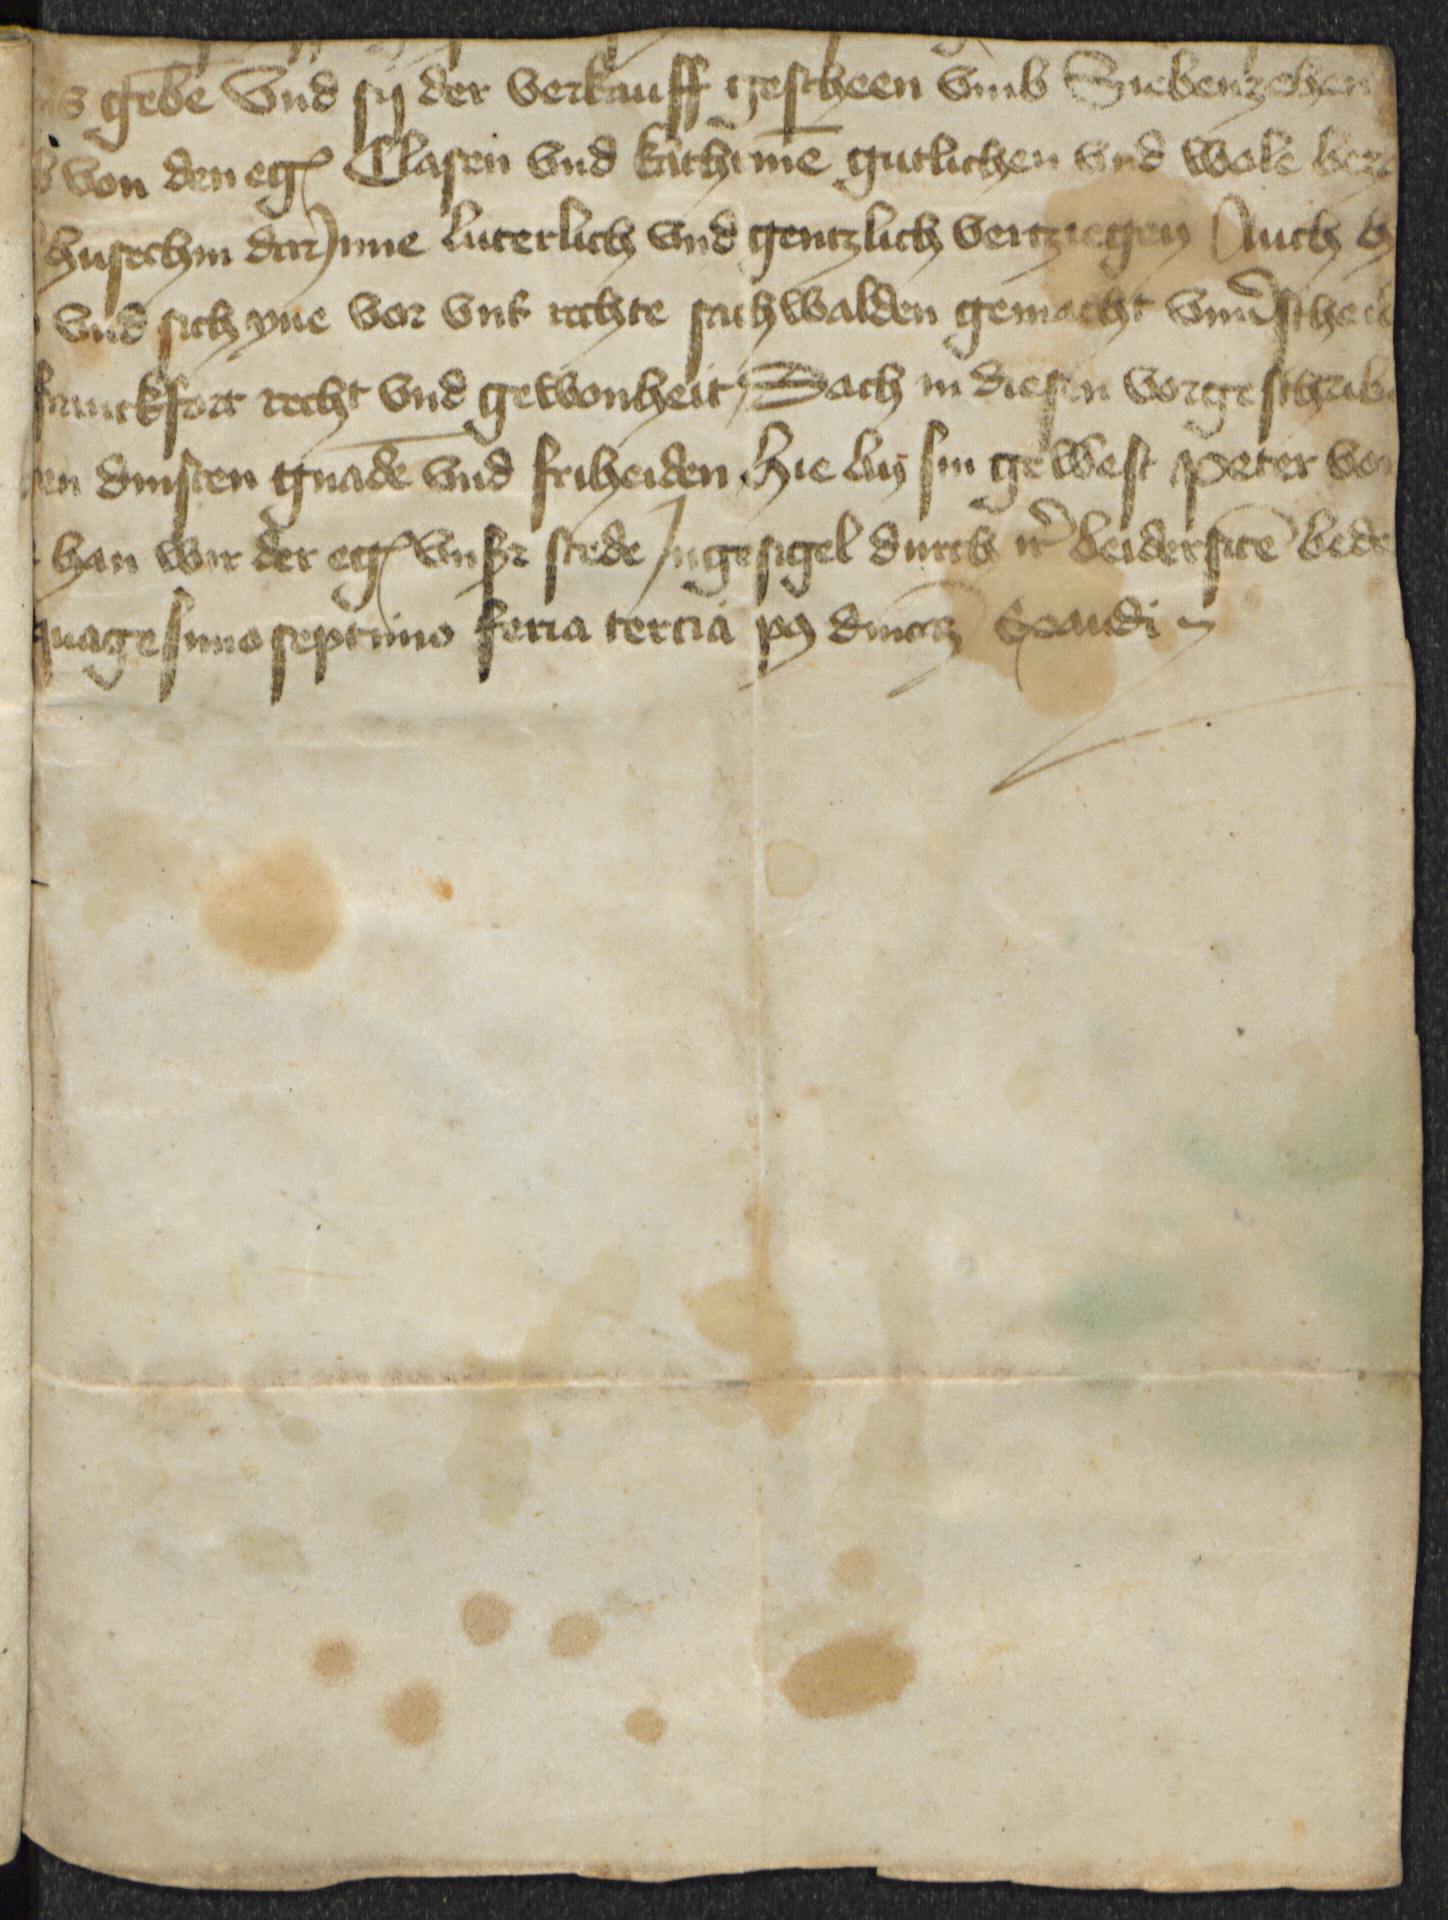 gebē Vnd sij der verkauff gescheen vmb Siebenzehen
von den egñ Clasen vnd Kathrinē gutlichen vnd wole
husechin dar Inne luterlich vnd gentzlich vertziegen Auch
vnd sich yne vor vnß rechte sachwalden gemacht
franckfort recht vnd gewonheit Dach in diesen vorgeschrib
dinsten gnadē vnd friheiden Hie by sin gewest Peter von
han wir der egñ vnsß stede Ingesigel durch ir̄ beidersitē bede
quagesimo septimo feria tercia pꝰ dm̄cā Exaudi